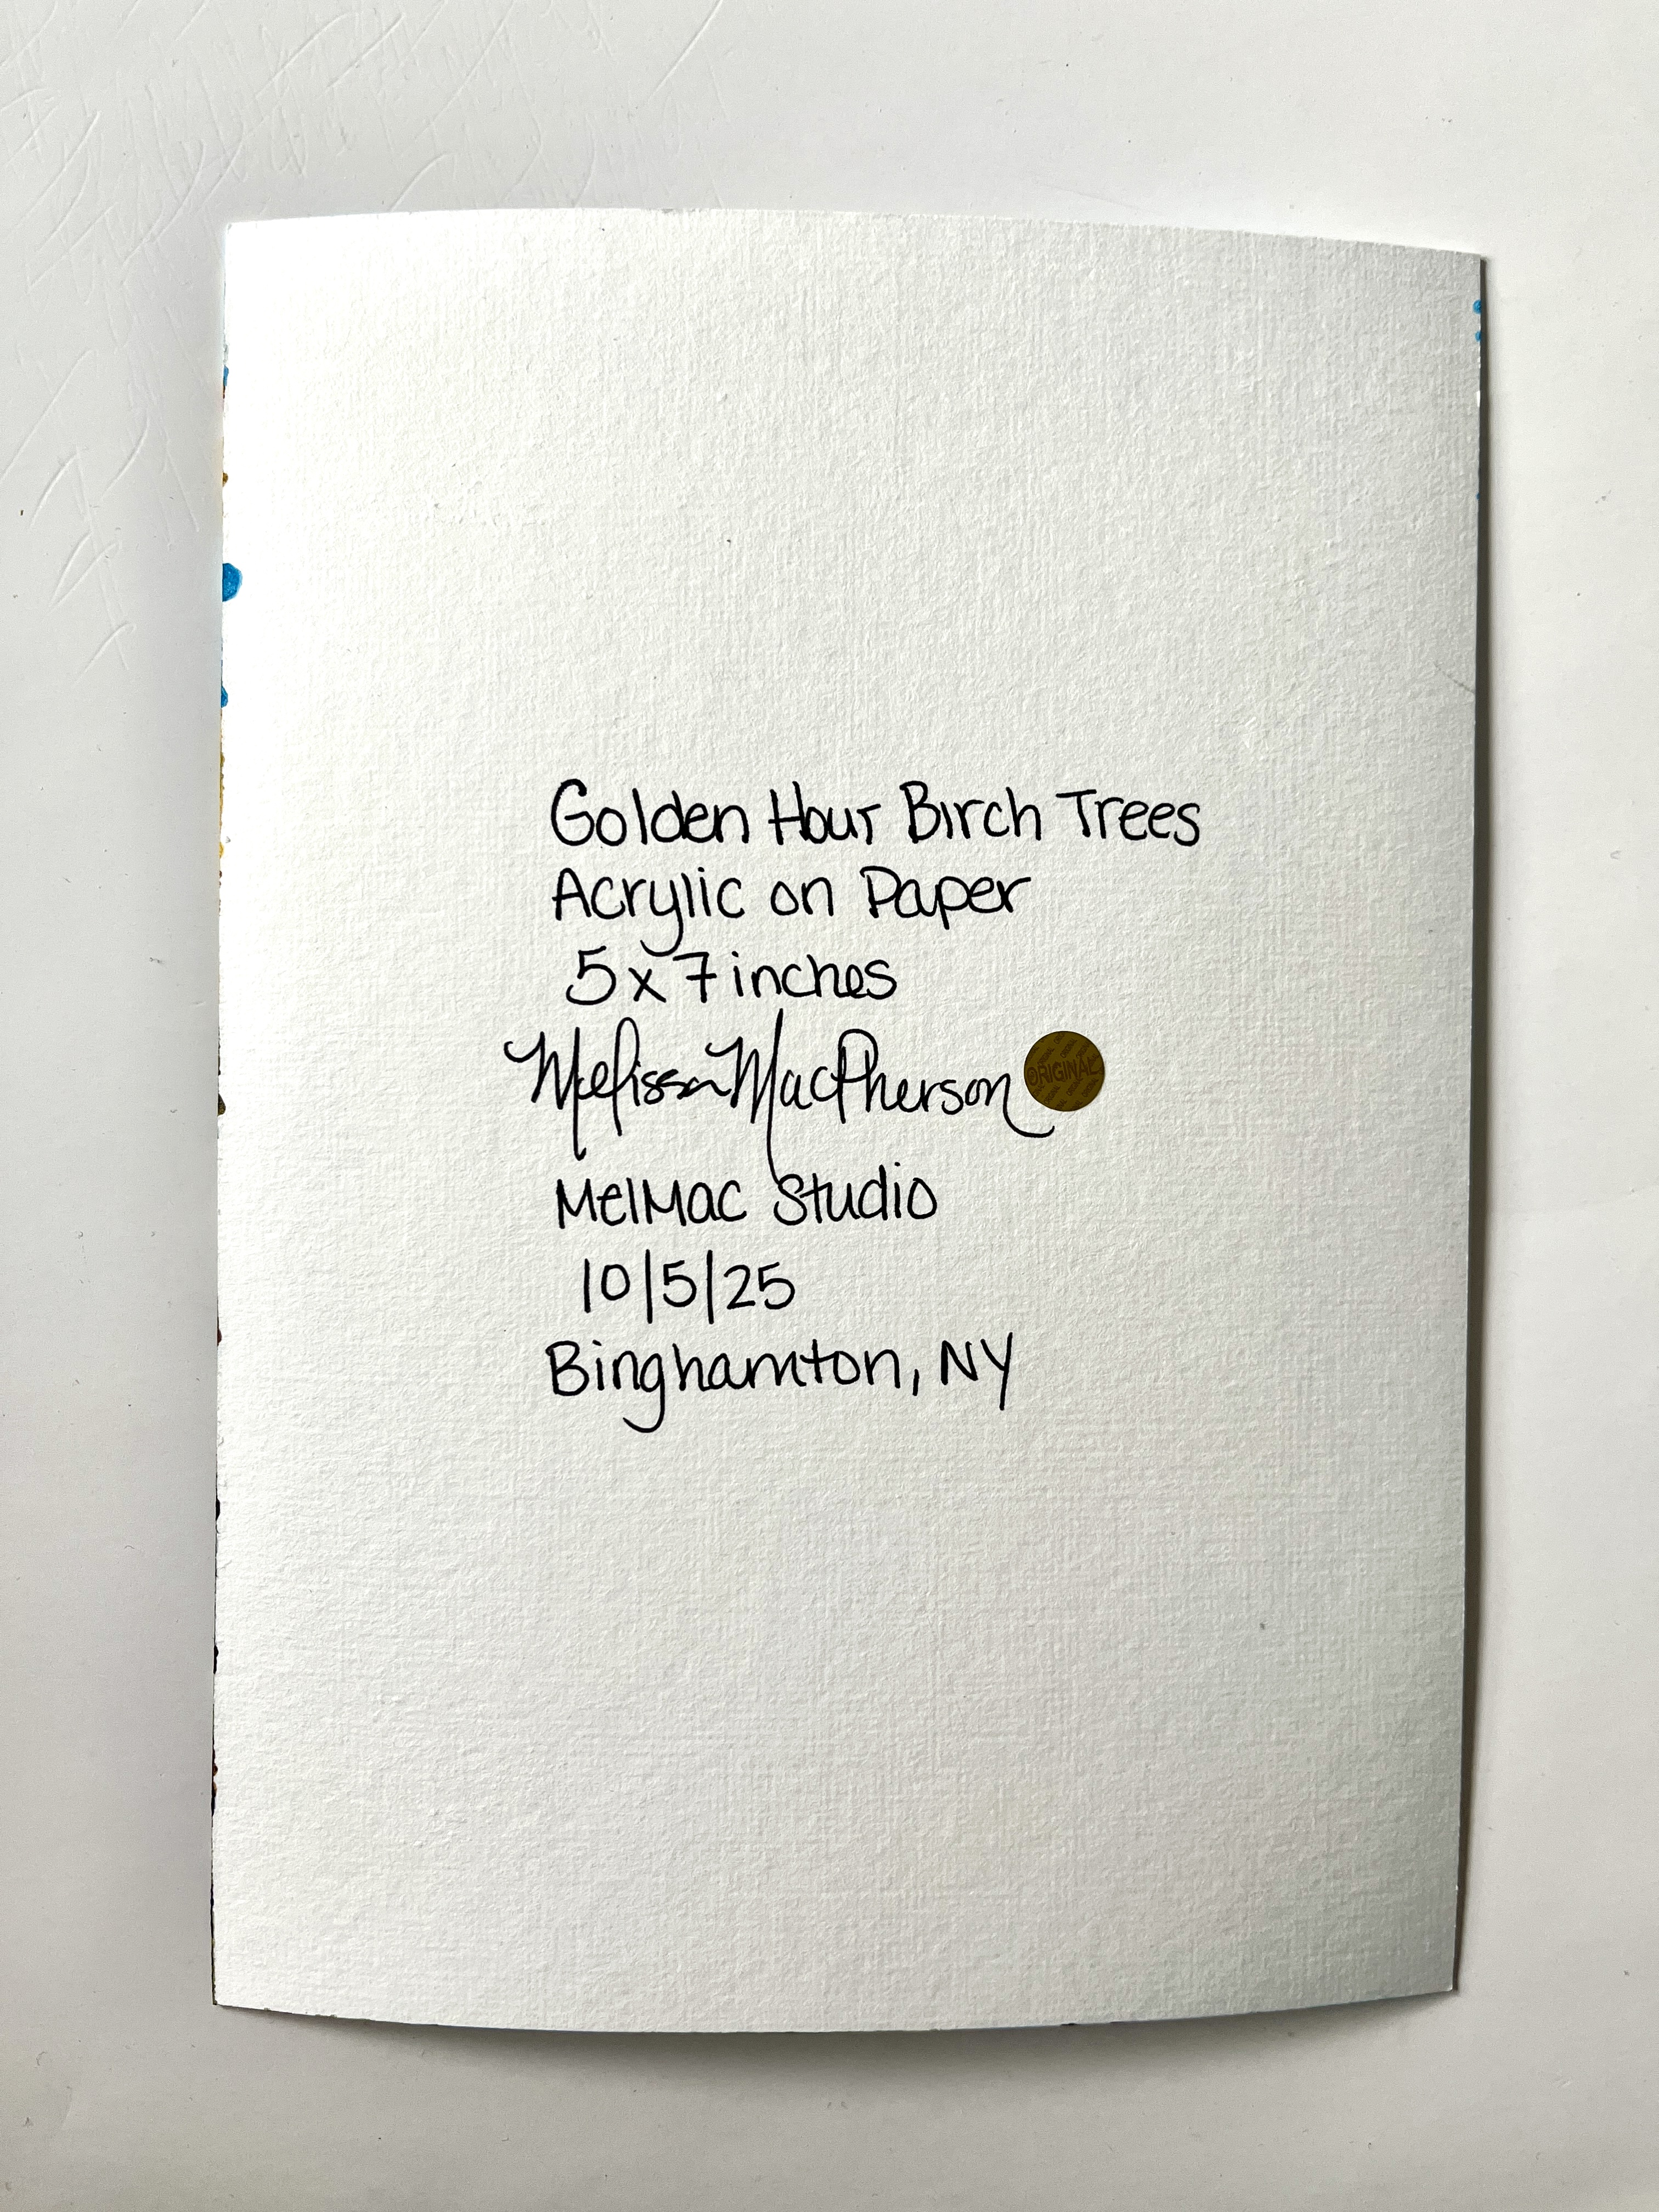 Golden Hour Birch Trees
Acrylic on Paper
5 x 7 inches
Melissa MacPherson ORIGINAL
MelMac Studio
10/5/25
Binghamton, NY